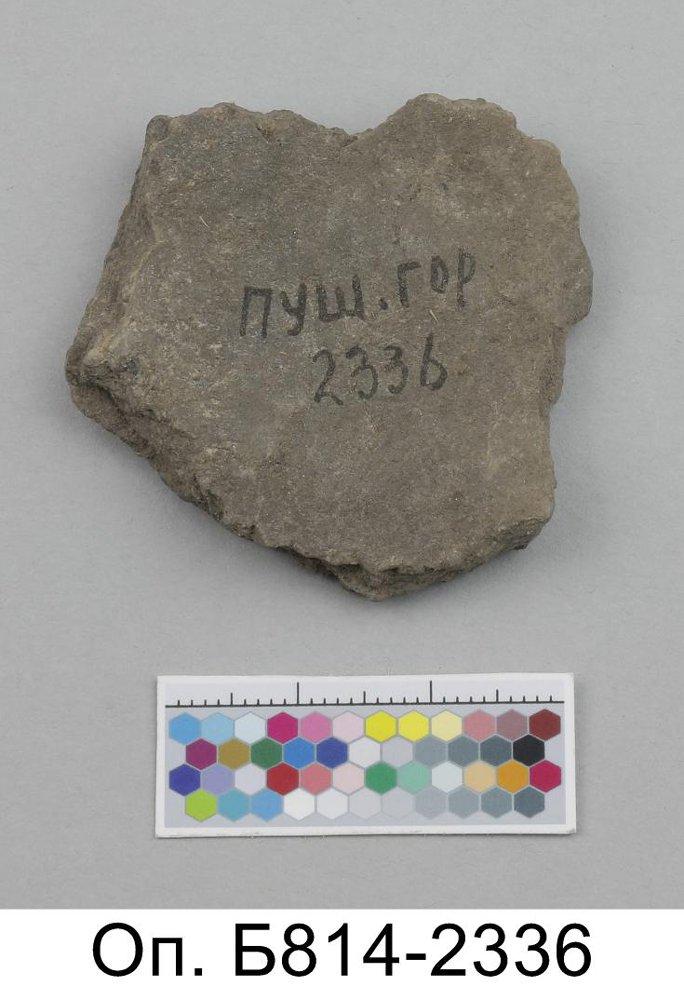 ПУШ.ГОР
2336
Оп. Б814-2336